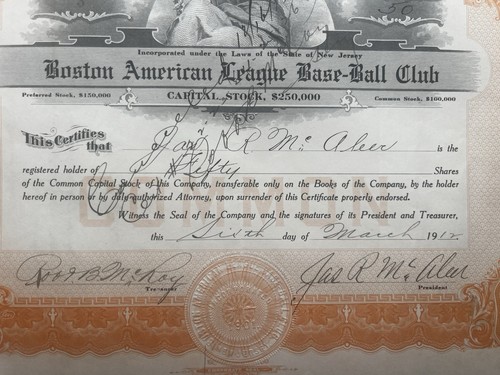 50
Incorporated under the Laws of the State of New Jersey
Boston American League Base-Ball Club
Preferred Stock, $150,000 CAPITAL STOCK, $250,000 Common Stock, $100,000
This Certifies that Jas R McAleer is the
registered holder of Fifty Shares
of the Common Capital Stock of this Company, transferable only on the Books of the Company, by the holder
hereof in person or by duly authorized Attorney, upon surrender of this Certificate properly endorsed.
Witness the Seal of the Company and the signatures of its President and Treasurer,
this Sixth day of March 1912
Robt B McRoy Jas R McAleer
Treasurer President